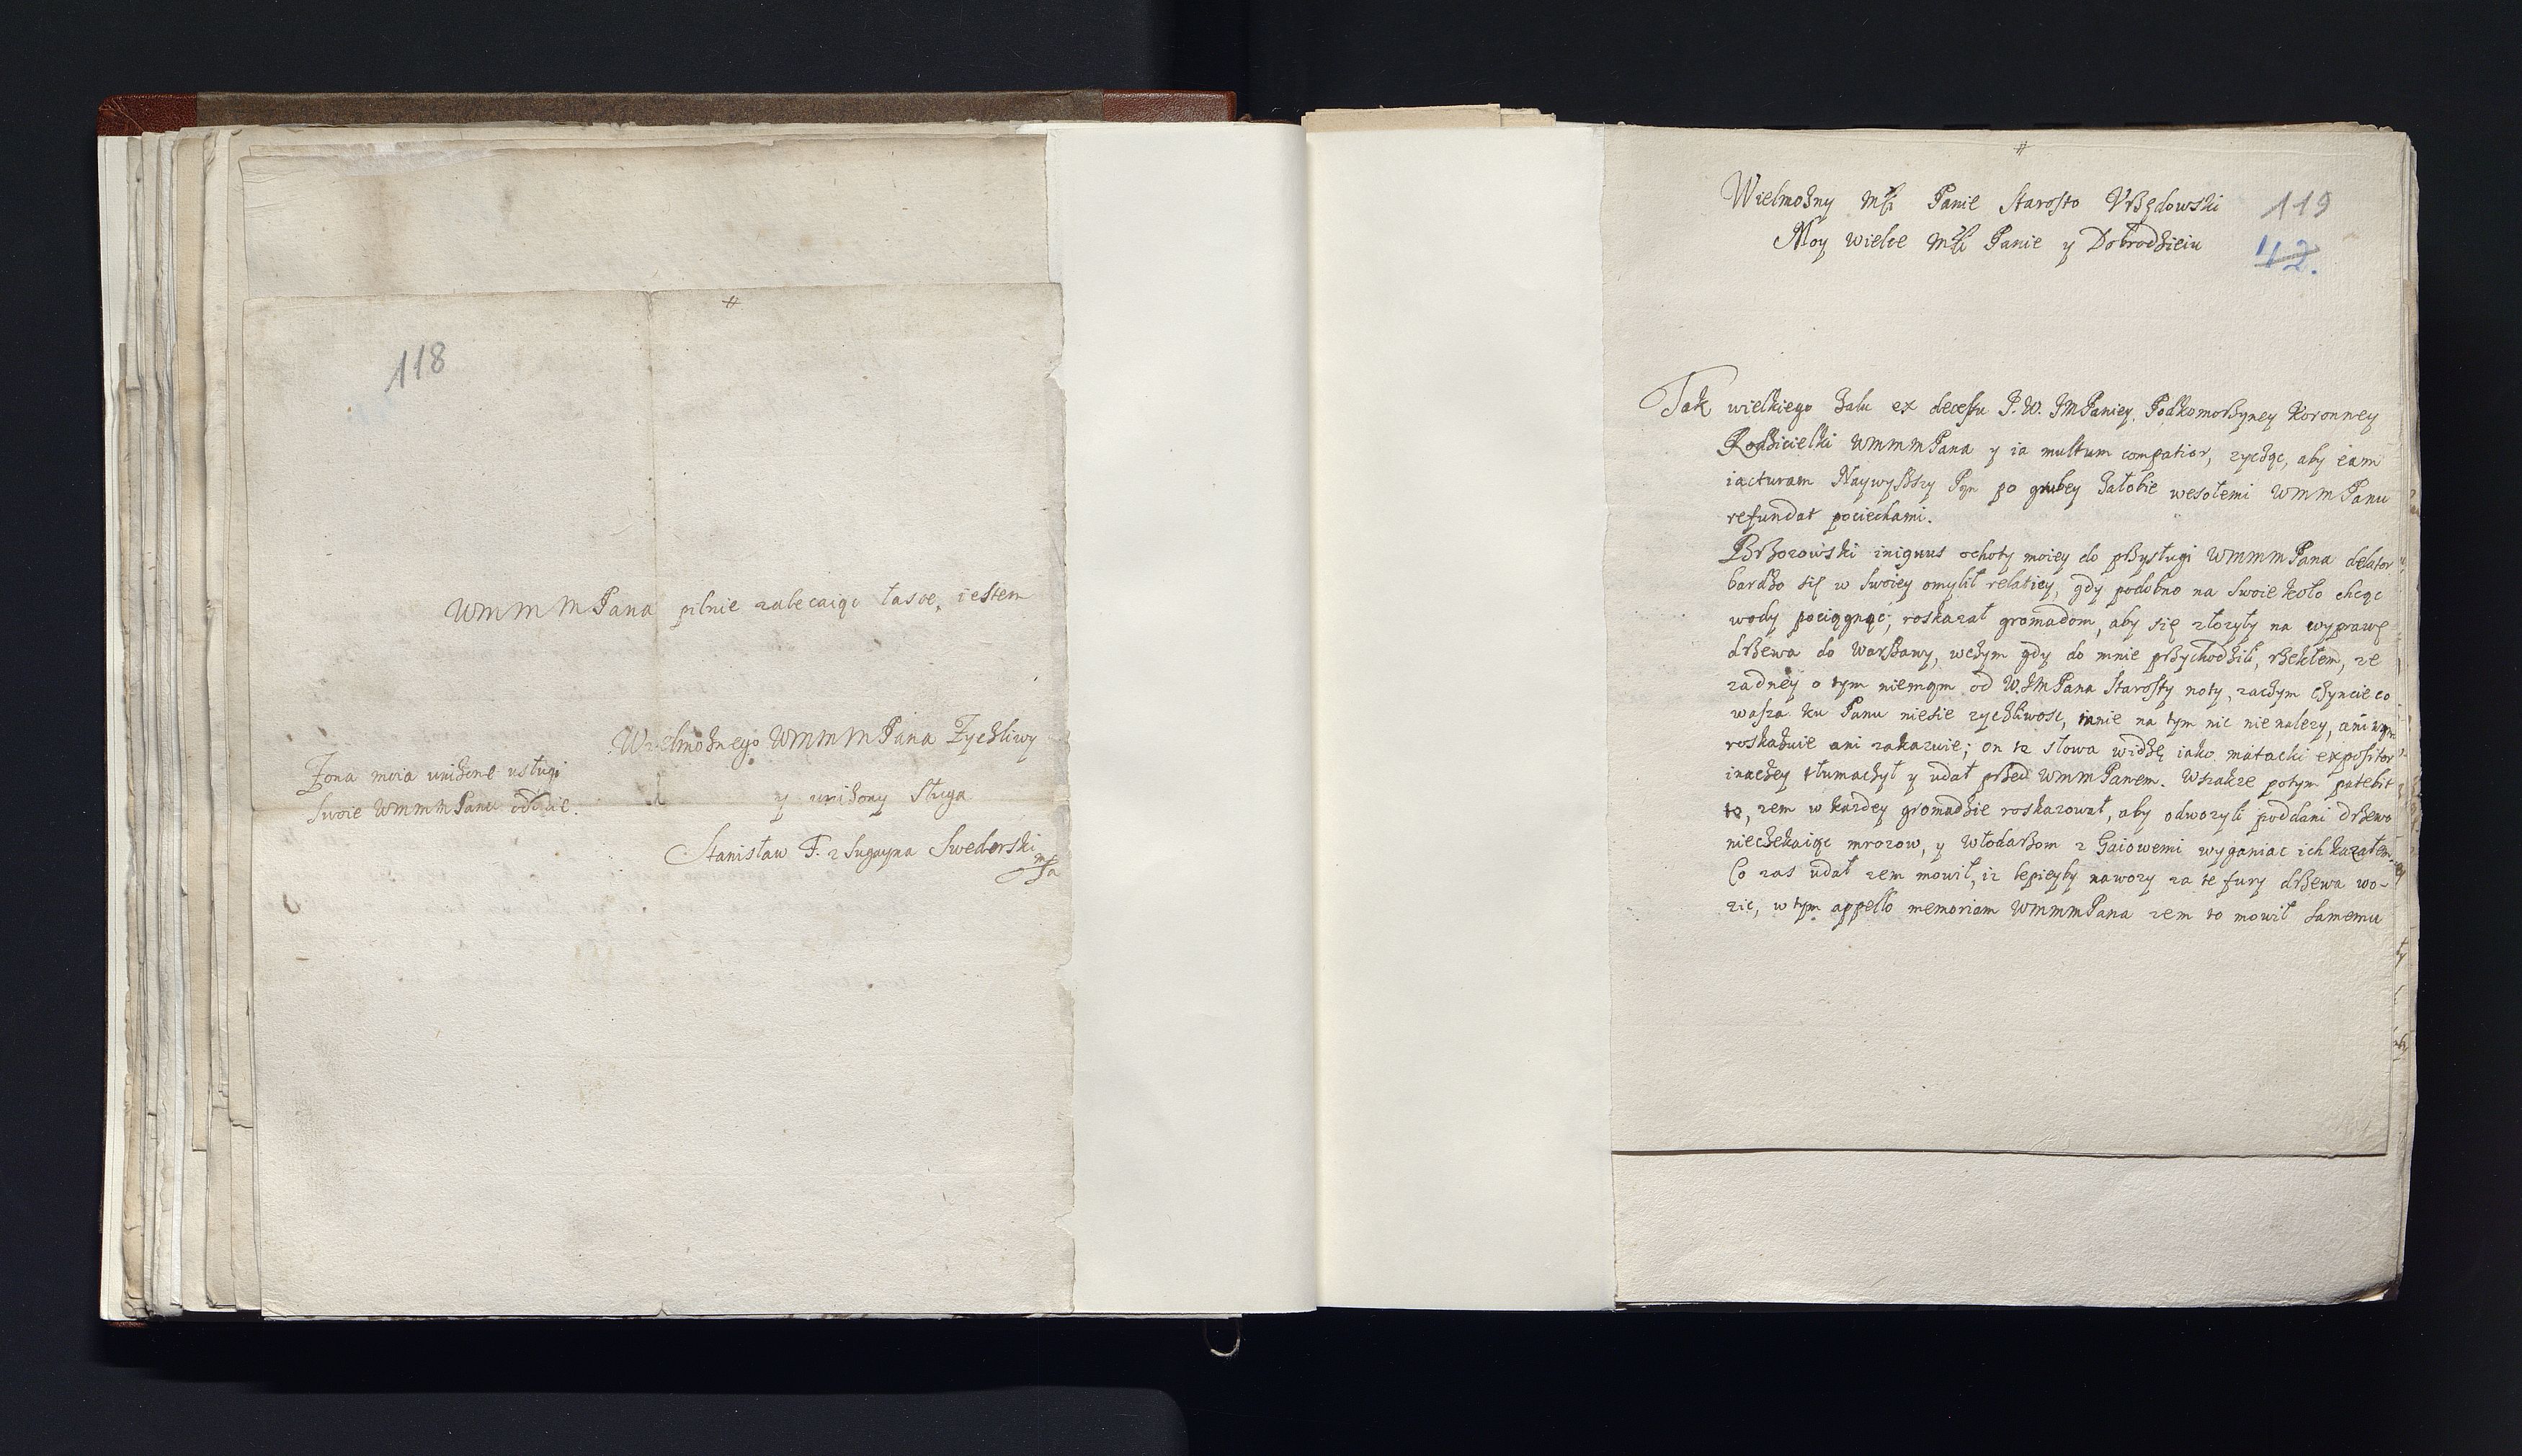 #
118
WMMMPana pilnie zalecaiąc łasce, iestem
Wielmożnego WMMMPana Zyczliwy
y uniżony Sługa
Stanisław F. z Sugayna Swederski
mpa
Zona moia uniżone usługi
swoie WMMMPanu oddaie.
#
119
42.
Wielmożny Mći Panie Starosto Urzędowski
Moy wielce Mći Panie y Dobrodzieiu
Tak wielkiego żalu ex decessu J.W. JMPaniey Podkomorzyney Koronney
Rodzicielki WMMMPana y ia multum compatior, zycząc, aby eam
iacturam Naywyższy Pan po grubey żałobie wesołemi WMMPanu
refundat pociechami.
Brzozowski iniquus ochoty moiey do przysługi WMMMPana delator
bardzo się w swoiey omylił relatiey, gdy podobno na swoie koło chcąc
wody pociągnąć, roskazał gromadom, aby się złozyły na wyprawę
drzewa do Warszawy, wczym gdy do mnie przychodzili, rzekłem, ze
zadney o tym niemąm od W.JMPana Starosty noty, zaczym czyncie co
wasza ku Panu niesie zyczliwosc, mnie na tym nic nie nalezy, ani wąm
roskazuie ani zakazuie; on te słowa widzę iako matacki expositor
inaczey tłumaczył y udał przed WMMPanem. Wszakze potym patebit
to, zem w kazdey gromadzie roskazował, aby odwozyli poddani drzewo
nieczekaiąc mrozow, y Włodarzom z Gaiowemi wyganiac ich kazałem.
Co zas udał zem mowił, iz lepieyby nawozy za te fury drzewa wo-
zic, w tym appello memoriam WMMMPana zem to mowił samemu